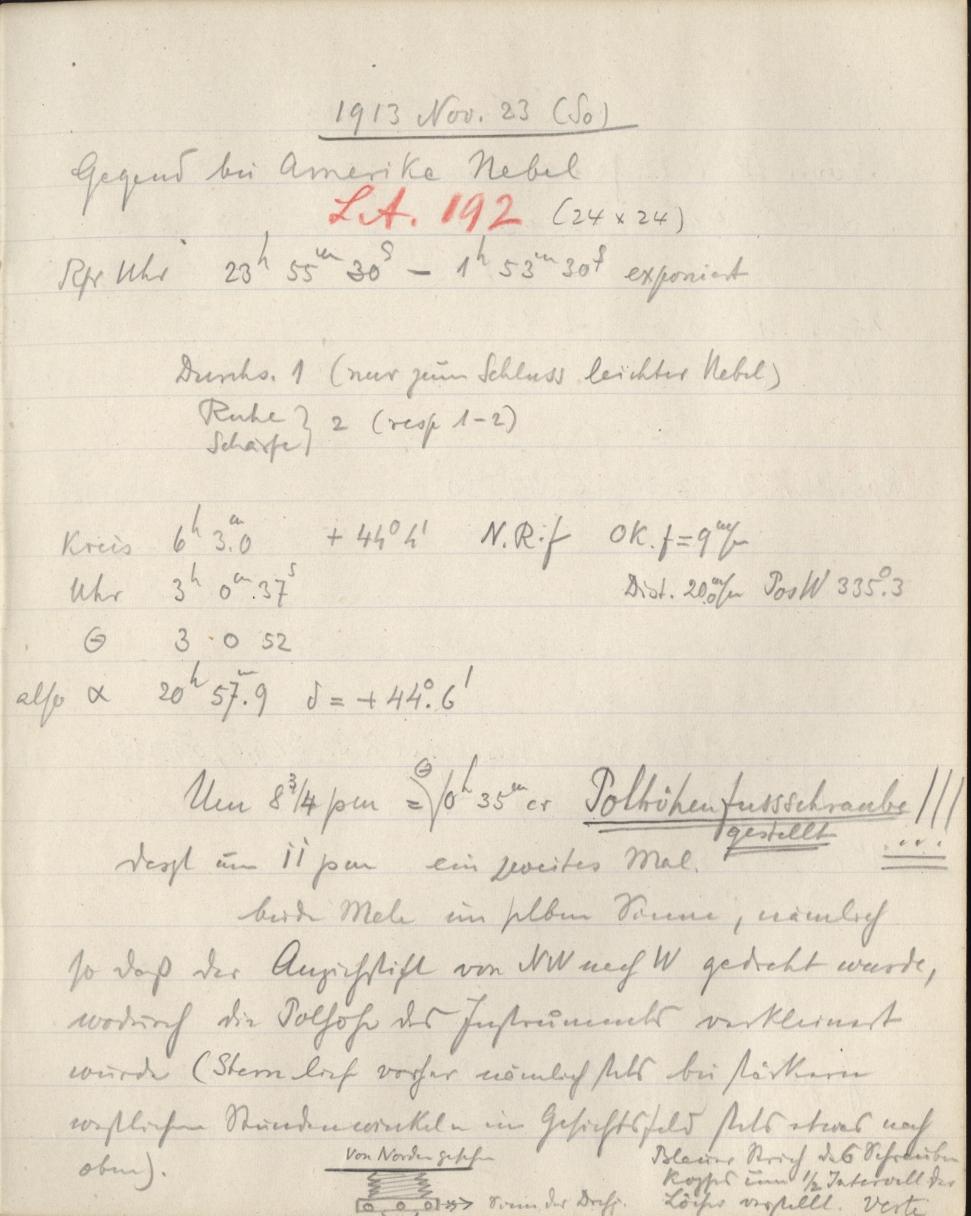 1913 Nov. 23 (So)
Gegend bei Amerika Nebel
L.A. 192 (24 x 24)
Rfr Uhr 23h 55m 30s – 1h 53m 30s exponiert
Durchs. 1 (nur zum Schluss leichter Nebel)
Ruhe } 2 (resp 1–2)
Schärfe
Kreis 6h 3m.0 + 44° 4' N.R.f OK. f = 9 m/m
Uhr 3h 0m.37s Dist. 20.0 m/m PosW 335°.3
Θ 3 0 52
also α 20h 57m.9 δ = + 44°.6'
Um 8 3/4 pm = Θ 0h 35m cr Polhöhenfussschraube !!!
gestellt
desgl um 11 pm ein zweites Mal.
beide Male im selben Sinne, nämlich
so daß der Anziehstift von NW nach W gedreht wurde,
wodurch die Polhöhe des Instruments verkleinert
wurde (Stern lief vorher nämlich stets bei stärkern
westlichen Stundenwinkeln im Gesichtsfeld stets etwas nach
oben).
Von Norden gesehen
Sinn der Drehg.
Blauer Strich des Schrauben
Kopfes um 1/2 Intervall der
Löcher verstellt. Verte